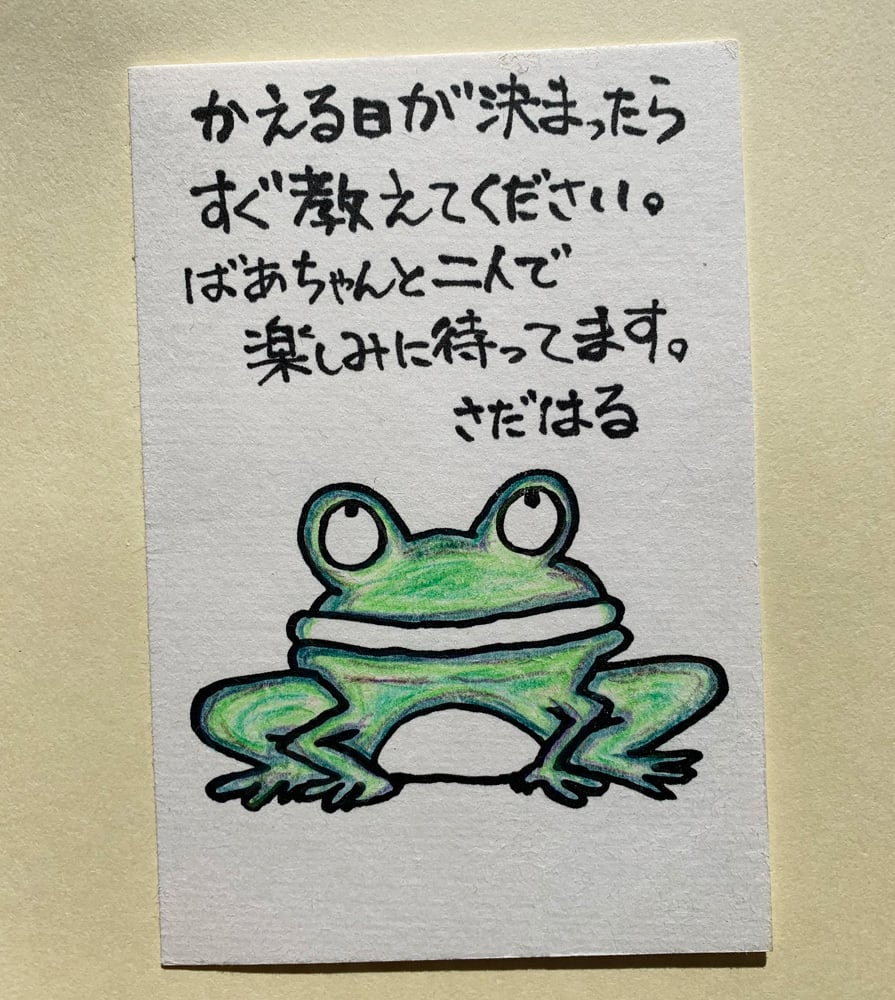 かえる日が決まったら
すぐ教えてください。
ばあちゃんと二人で
楽しみに待ってます。
さだはる